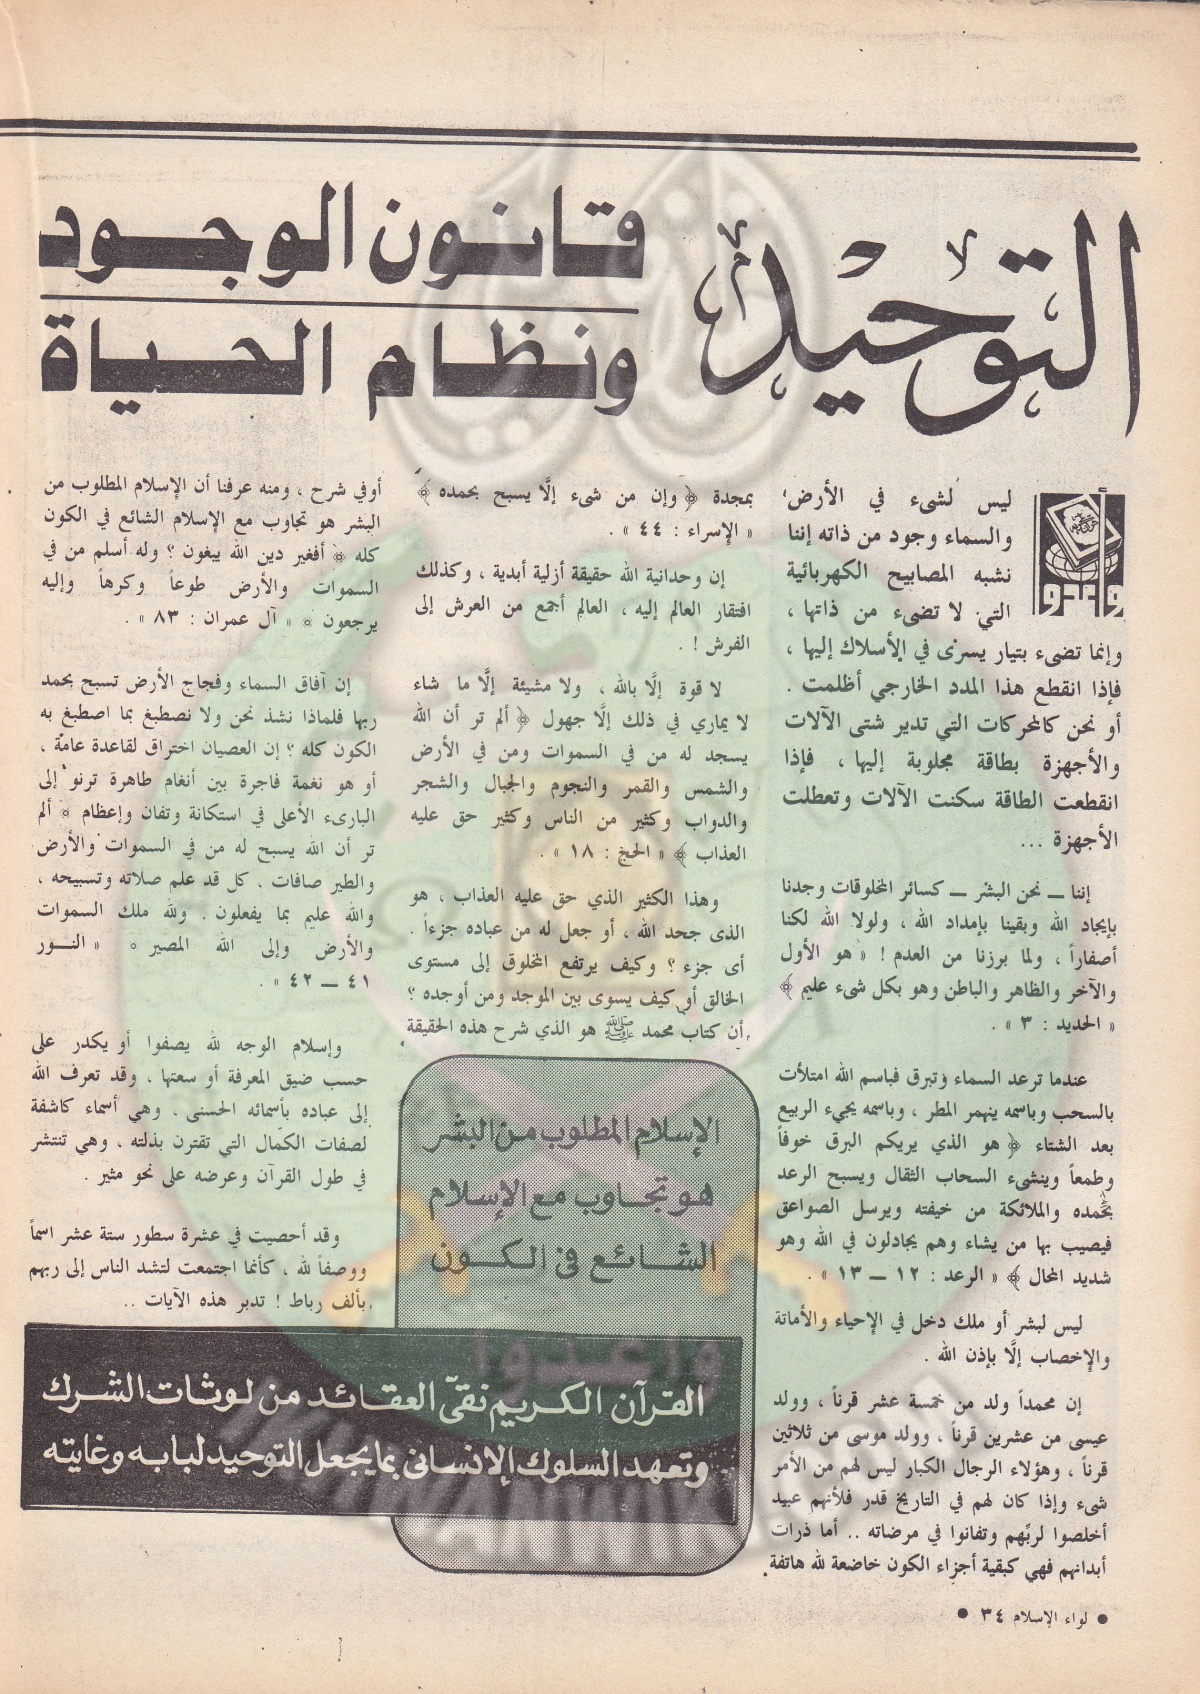 التوحيد
قانون الوجود
ونظام الحياة
وأعدوا
ليس لشىء في الأرض
والسماء وجود من ذاته إننا
نشبه المصابيح الكهربائية
التي لا تضىء من ذاتها ،
وإنما تضىء بتيار يسرى في الأسلاك إليها ،
فإذا انقطع هذا المدد الخارجي أظلمت .
أو نحن كالمحركات التي تدير شتى الآلات
والأجهزة بطاقة مجلوبة إليها ، فإذا
انقطعت الطاقة سكنت الآلات وتعطلت
الأجهزة ...
إننا ــ نحن البشر ــ كسائر المخلوقات وجدنا
بإيجاد الله وبقينا بإمداد الله ، ولولا الله لكنا
أصفاراً ، ولما برزنا من العدم ! ﴿ هو الأول
والآخر والظاهر والباطن وهو بكل شىء عليم ﴾
« الحديد : ٣ » .
عندما ترعد السماء وتبرق فباسم الله امتلأت
بالسحب وباسمه ينهمر المطر ، وباسمه يجيء الربيع
بعد الشتاء ﴿ هو الذي يريكم البرق خوفاً
وطمعاً وينشىء السحاب الثقال ويسبح الرعد
بحمده والملائكة من خيفته ويرسل الصواعق
فيصيب بها من يشاء وهم يجادلون في الله وهو
شديد المحال ﴾ « الرعد : ١٢ ــ ١٣ » .
ليس لبشر أو ملك دخل في الإحياء والأماتة
والإخصاب إلَّا بإذن الله .
إن محمداً ولد من خمسة عشر قرناً ، وولد
عيسى من عشرين قرناً ، وولد موسى من ثلاثين
قرناً ، وهؤلاء الرجال الكبار ليس لهم من الأمر
شىء وإذا كان لهم في التاريخ قدر فلأنهم عبيد
أخلصوا لربِّهم وتفانوا في مرضاته .. أما ذرات
أبدانهم فهي كبقية أجزاء الكون خاضعة لله هاتفة
بمجدة ﴿ وإن من شىء إلَّا يسبح بحمده ﴾
« الإسراء : ٤٤ » .
إن وحدانية الله حقيقة أزلية أبدية ، وكذلك
افتقار العالم إليه ، العالم أجمع من العرش إلى
الفرش ! .
لا قوة إلَّا بالله ، ولا مشيئة إلَّا ما شاء
لا يماري في ذلك إلَّا جهول ﴿ ألم تر أن الله
يسجد له من في السموات ومن في الأرض
والشمس والقمر والنجوم والجبال والشجر
والدواب وكثير من الناس وكثير حق عليه
العذاب ﴾ « الحج : ١٨ » .
وهذا الكثير الذي حق عليه العذاب ، هو
الذى جحد الله ، أو جعل له من عباده جزءاً .
أى جزء ؟ وكيف يرتفع المخلوق إلى مستوى
الخالق أو كيف يسوى بين الموجد ومن أوجده ؟
إن كتاب محمد ﷺ هو الذي شرح هذه الحقيقة
أوفي شرح ، ومنه عرفنا أن الإسلام المطلوب من
البشر هو تجاوب مع الإسلام الشائع في الكون
كله ﴿ أفغير دين الله يبغون ؟ وله أسلم من في
السموات والأرض طوعاً وكرهاً وإليه
يرجعون ﴾ « آل عمران : ٨٣ » .
إن آفاق السماء وفجاج الأرض تسبح بحمد
ربها فلماذا نشذ نحن ولا نصطبغ بما اصطبغ به
الكون كله ؟ إن العصيان اختراق لقاعدة عامة ،
أو هو نغمة فاجرة بين أنغام طاهرة ترنو إلى
البارىء الأعلى في استكانة وتفان وإعظام ﴿ ألم
تر أن الله يسبح له من في السموات والأرض
والطير صافات . كل قد علم صلاته وتسبيحه ،
والله عليم بما يفعلون . ولله ملك السموات
والأرض وإلى الله المصير ﴾ « النور
٤١ ــ ٤٢ » .
وإسلام الوجه لله يصفوا أو يكدر على
حسب ضيق المعرفة أو سعتها ، وقد تعرف الله
إلى عباده بأسمائه الحسنى . وهي أسماء كاشفة
لصفات الكمال التي تقترن بذلته ، وهي تنتشر
في طول القرآن وعرضه على نحو مثير .
وقد أحصيت في عشرة سطور ستة عشر اسماً
ووصفاً لله ، كأنما اجتمعت لتشد الناس إلى ربهم
بألف رباط ! تدبر هذه الآيات ..
الإسلام المطلوب من البشر
هو تجاوب مع الإسلام
الشائع فى الكون
القرآن الكريم نقىّ العقائد من لوثات الشرك
وتعهد السلوك الإنسانى بما يجعل التوحيد لبابه وغايته
وأعدوا
IKHWANWIKI
● لواء الإسلام ٣٤ ●